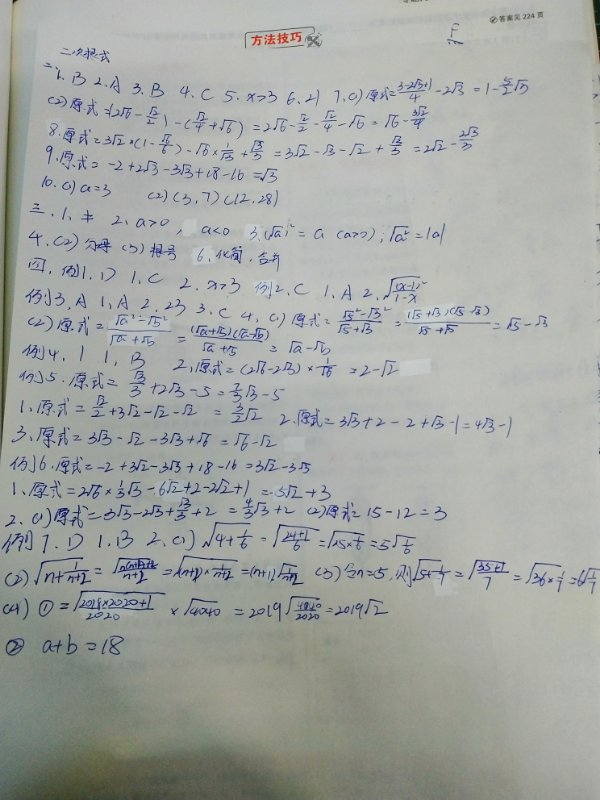 答案见 224 页
方法技巧
二次根式
二、1. B 2. A 3. B 4. C 5. x>3 6. 21 7. (1) 原式=(3-2√3+1)/4 -2√3 = 1-5/2√3
(2) 原式=(2√6-√2/2)-(√2/4+√6) = 2√6-√2/2-√2/4-√6 = √6-3√2/4
8. 原式=3√2×(1-√6/6)-√6×1/√3+√3/3 = 3√2-√3-√2+√3/3 = 2√2-2√3/3
9. 原式= -2+2√3-3√3+18-16 = √3
10. (1) a=3 (2) (3,7) (12,28)
三. 1. 2. a>0, a<0 3. (√a)²=a (a≥0); √a²=|a|
4. (2) 分母 (3) 根号 6. 化简, 合并
四. 例1. D 1. C 2. x>3 例2. C 1. A 2. √((x-1)²/(1-x))
例3. A 1. A 2. 2√3 3. C 4. (1) 原式=(√5²-√3²)/(√5+√3) = (√5+√3)(√5-√3)/(√5+√3) = √5-√3
(2) 原式=(√a²-√b²)/(√a+√b) = (√a+√b)(√a-√b)/(√a+√b) = √a-√b
例4. 1 1. B 2. 原式=(2√6-2√3)×1/√6 = 2-√2
例5. 原式=√3/3+2√3-5=7/3√3-5
1. 原式=√2/2+3√2-√2-√2 = 3/2√2 2. 原式=3√3+2-2+√3-1=4√3-1
3. 原式=3√3-√2-3√3+√6=√6-√2
例6. 原式=-2+3√2-3√3+18-16=3√2-3√3
1. 原式=2√6×1/3√3-6√2+2-2√2+1 = -5√2+3
2. (1) 原式=3√3-2√3+√3/3+2=4/3√3+2 (2) 原式=15-12=3
例7. D 1. B 2. (1) √(4+1/6) = √((24+1)/6) = √(25×1/6) = 5√(1/6)
(2) √(n+1/(n+2)) = √((n(n+2)+1)/(n+2)) = √((n+1)²×1/(n+2)) = (n+1)√(1/(n+2)) (3) 令n=5, 则√(5+1/7) = √((35+1)/7) = √(36×1/7) = 6√(1/7)
(4) ① = √((2018×2020+1)/2020) × √4040 = 2019√(4040/2020) = 2019√2
② a+b=18